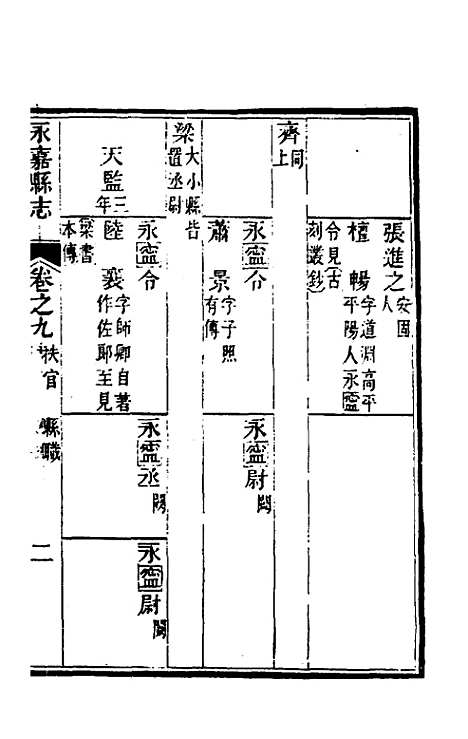 張進之 安固
人
檀暢 字道淵高平
平陽人永寧
令見古
刻叢鈔
齊 同
上
永寧令
永寧尉 闕
蕭景 字子照
有傳
梁 大小縣皆
置丞尉
永寧令
永寧丞 闕
永寧尉 闕
天監三
年
陸襄 字師卿自著
作佐郎至見
梁書
本傳
永嘉縣志
卷之九 秩官 縣職
二